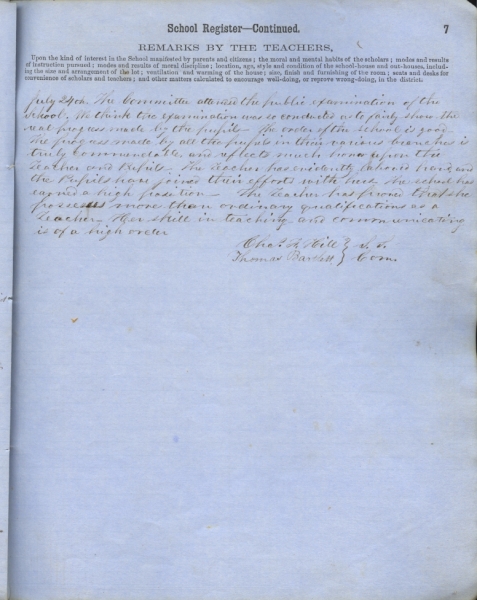 School Register—Continued. 7
REMARKS BY THE TEACHERS,
Upon the kind of interest in the School manifested by parents and citizens; the moral and mental habits of the scholars; modes and results
of instruction pursued; modes and results of moral discipline; location, age, style and condition of the school-house and out-houses, includ-
ing the size and arrangement of the lot; ventilation and warming of the house; size, finish and furnishing of the room; seats and desks for
convenience of scholars and teachers; and other matters calculated to encourage well-doing, or reprove wrong-doing, in the district.
July 24th. The Committee attend the public examination of the
School. We think the examination was so conducted as to fairly show the
real progress made by the pupils. The order of the school is good.
The progress made by all the pupils in their various branches is
truly commendable and reflects much honor upon the
teacher and Pupils. The teacher has evidently labored hard and
the Pupils have joined their efforts with her. The school has
earned a high position. The teacher has proved that she
possesses more than ordinary qualifications as a
Teacher. Her skill in teaching and communicating
is of a high order
Chas. Hill } S. S.
Thomas Bartlett } Com.